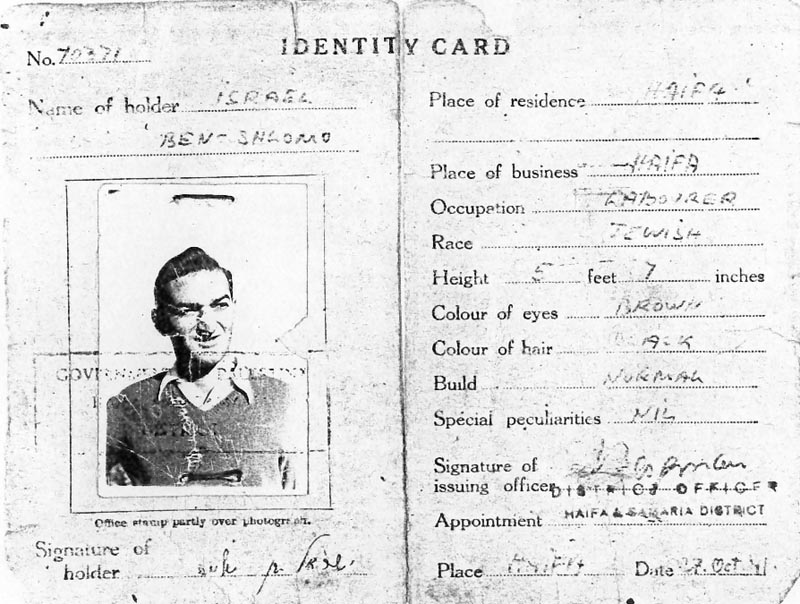 IDENTITY CARD
No. 70371
Name of holder ISRAEL
BEN-SHLOMO
GOVERNMENT
Office stamp partly over photograph.
Signature of
holder
Place of residence HAIFA
Place of business HAIFA
Occupation LABOURER
Race JEWISH
Height 5 feet 7 inches
Colour of eyes BROWN
Colour of hair
Build NORMAL
Special peculiarities NIL
Signature of
issuing officer
DISTRICT OFFICER
HAIFA & SAMARIA DISTRICT
Appointment
Place HAIFA Date Oct